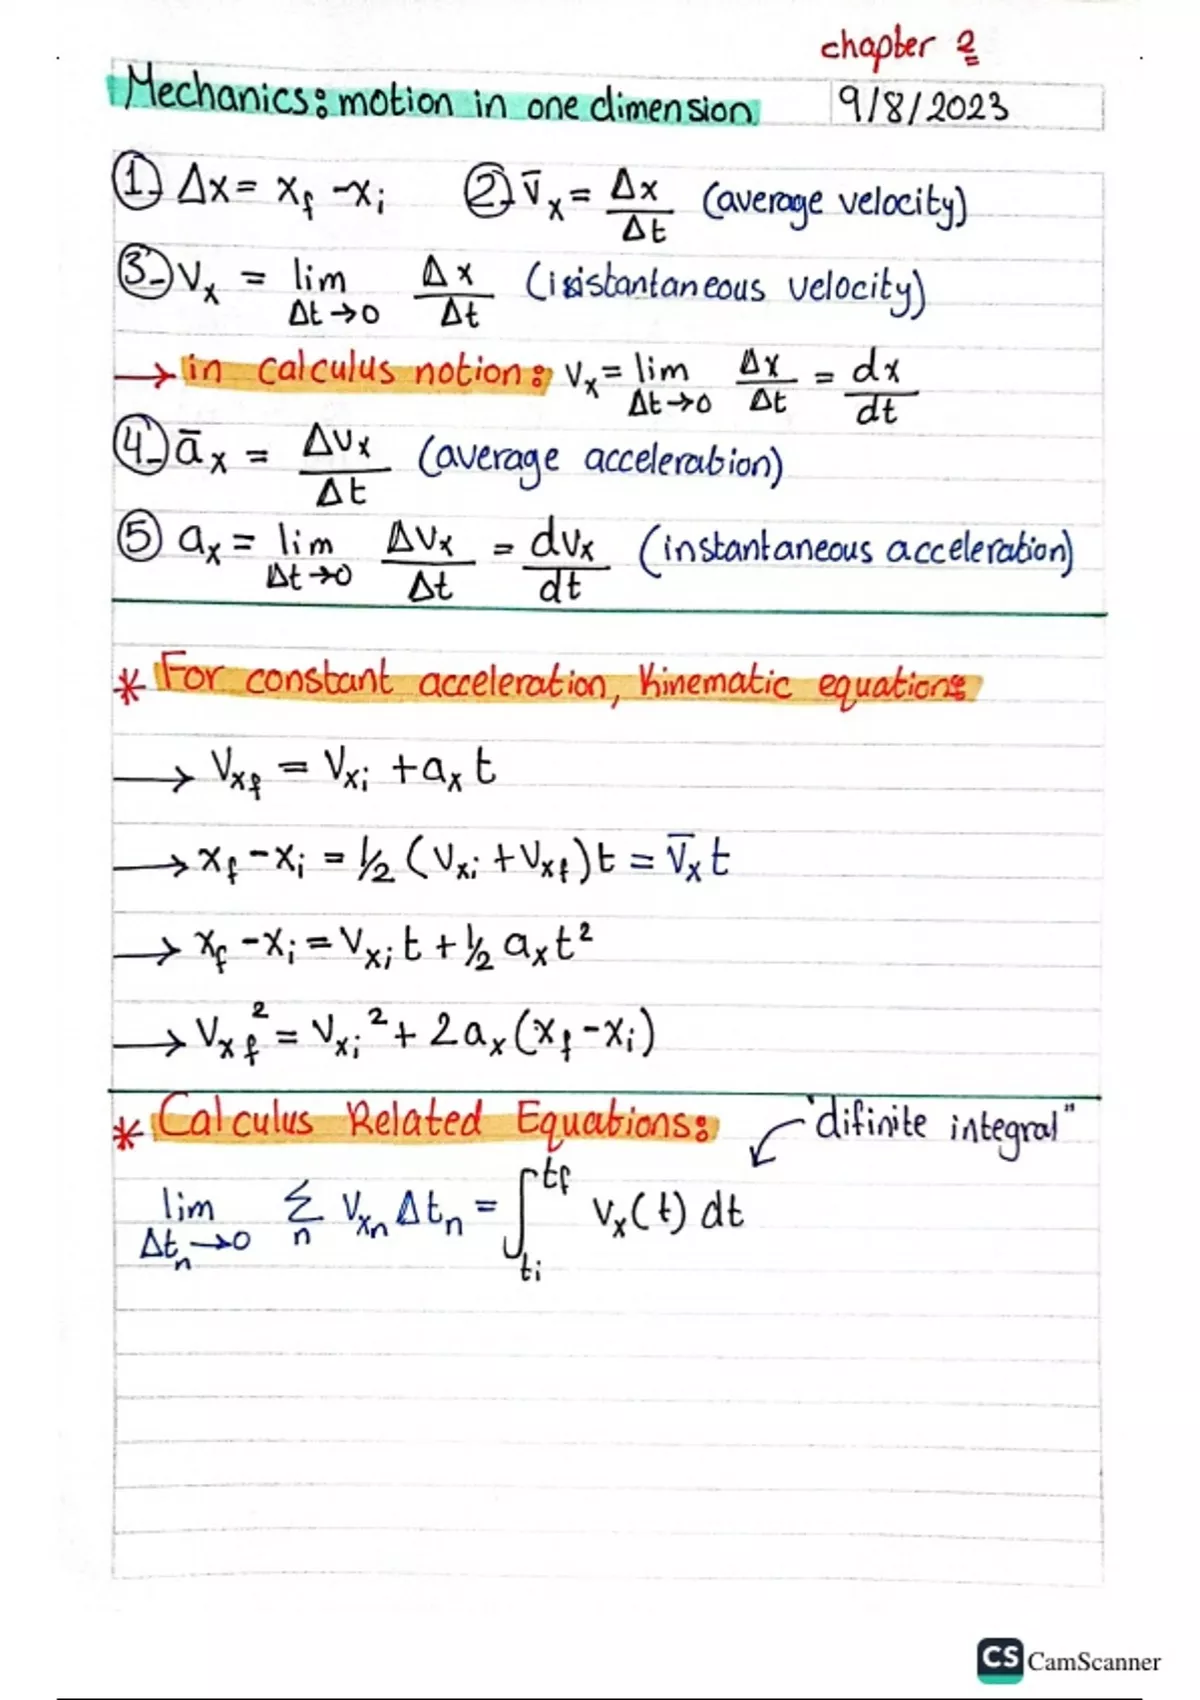 chapter 2
Mechanics: motion in one dimension 9/8/2023
1- Δx = xf - xi 2- v̄x = Δx/Δt (average velocity)
3- vx = lim Δt→0 Δx/Δt (instantaneous velocity)
→ in calculus notion: vx = lim Δt→0 Δx/Δt = dx/dt
4- āx = Δvx/Δt (average acceleration)
5 ax = lim Δt→0 Δvx/Δt = dvx/dt (instantaneous acceleration)
* For constant acceleration, Kinematic equations
→ Vxf = Vxi + ax t
→ xf - xi = 1/2 (Vxi + Vxf) t = V̄x t
→ xf - xi = Vxi t + 1/2 ax t²
→ Vxf² = Vxi² + 2ax (xf - xi)
* Calculus Related Equations: "difinite integral"
lim Δtn→0 Σn Vxn Δtn = ∫ti^tf Vx(t) dt
CS CamScanner